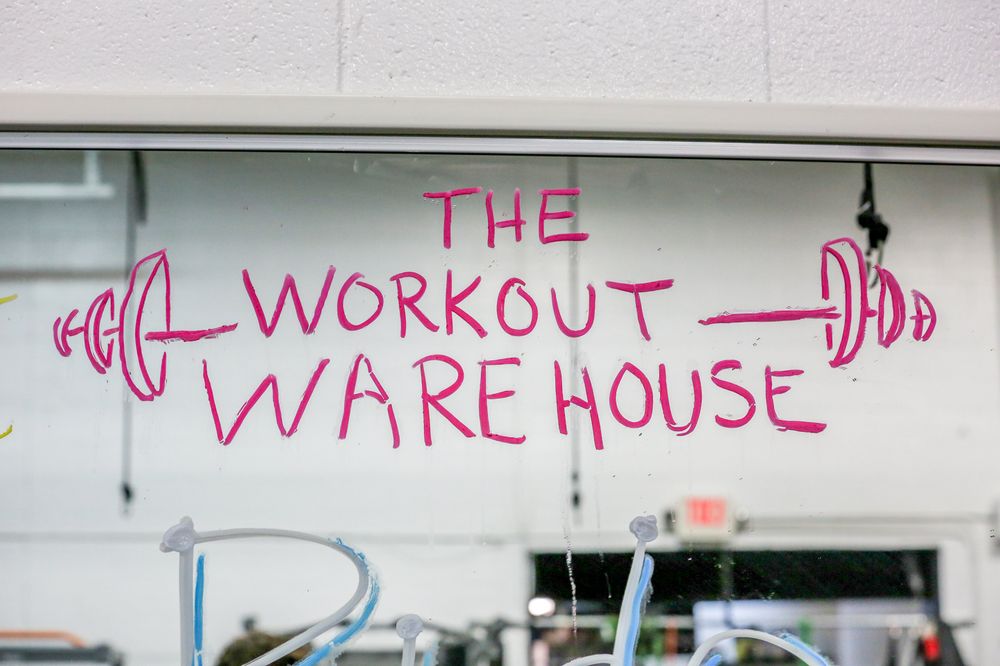 THE
WORKOUT
WAREHOUSE